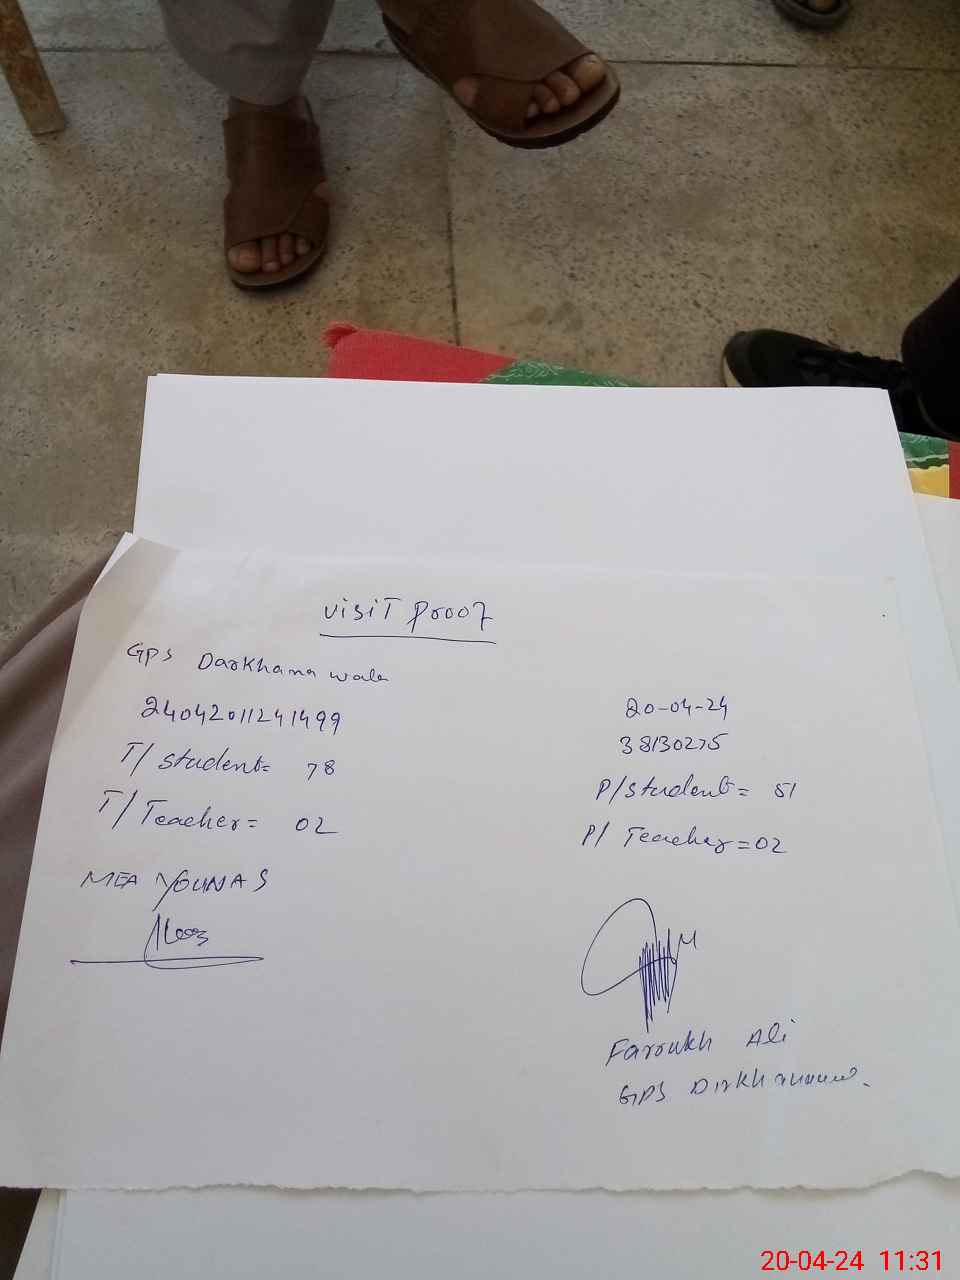 visit proof
GPS Darkhana wala
24042011241499
20-04-24
38130275
T/student= 78
P/student= 51
T/Teacher= 02
P/Teacher=02
MEA YOUNAS
Farrukh Ali
GPS
20-04-24 11:31